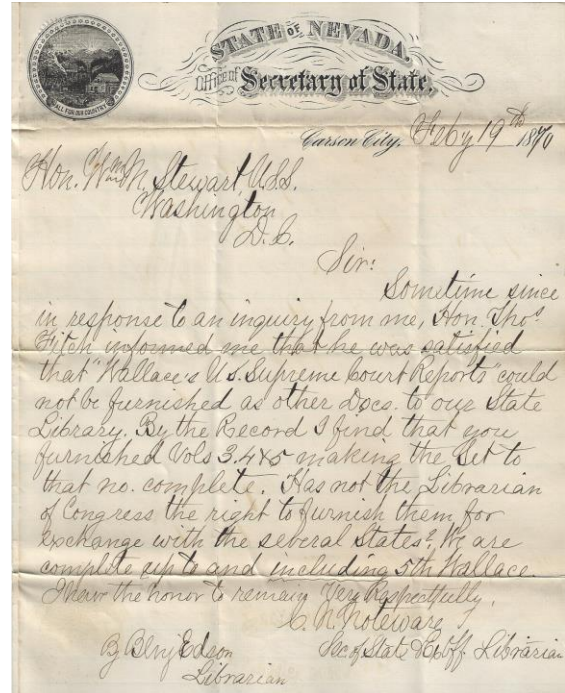 ALL FOR OUR COUNTRY
STATE OF NEVADA.
Office of Secretary of State.
Carson City, Feby 19th 1870
Hon. Wm M. Stewart, U.S.S.
Washington
D.C.
Sir:
Sometime since
in response to an inquiry from me, Hon. Thos.
Fitch informed me that he was satisfied
that "Wallace's U.S. Supreme Court Reports" could
not be furnished as other Docs. to our State
Library. By the Record I find that you
furnished Vols 3.4&5 making the Set to
that no. complete. Has not the Librarian
of Congress the right to furnish them for
exchange with the several States? We are
complete up to and including 5th Wallace.
I have the honor to remain Very Respectfully,
C. N. Noteware
By Benj Edson Sec of State & Ex Off. Librarian
Librarian